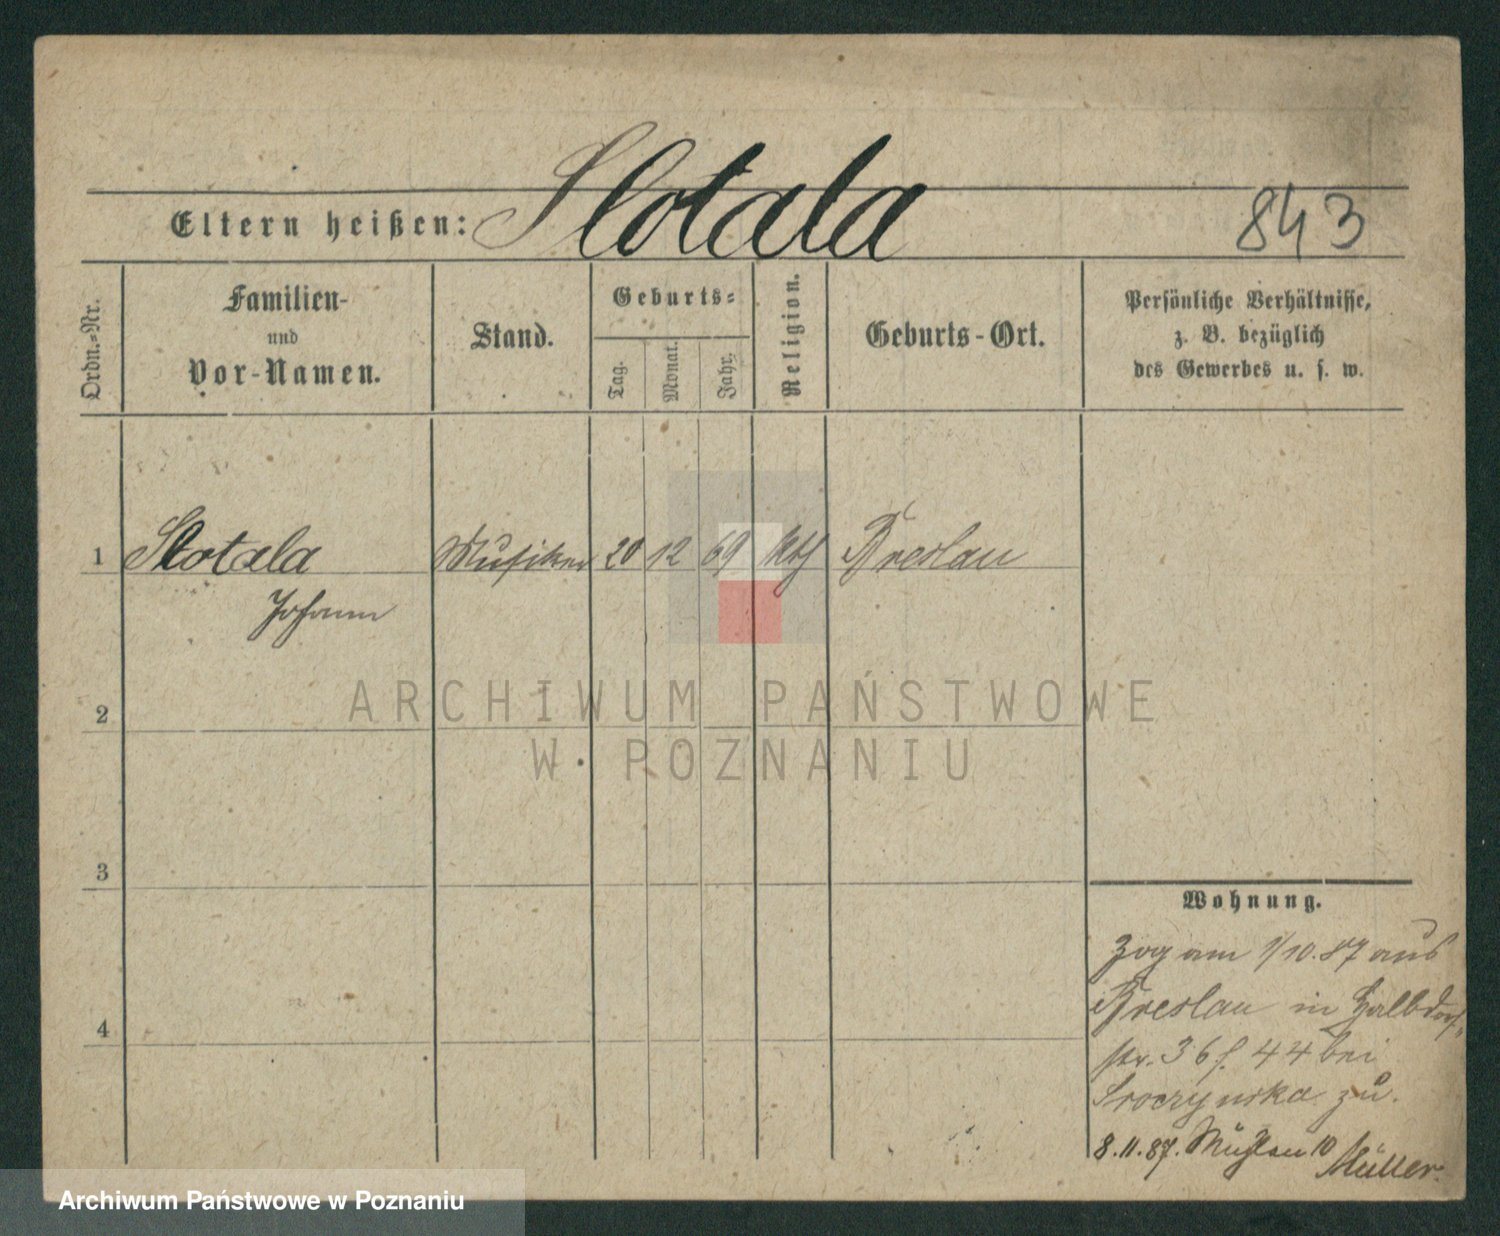 Eltern heißen: Slotala
843
Ordn.-Nr.
Familien-
und
Vor-Namen.
Stand.
Geburts-
Tag.
Monat.
Jahr.
Religion.
Geburts-Ort.
Persönliche Verhältnisse,
z. B. bezüglich
des Gewerbes u. s. w.
1 Slotala Musiker 20 12 69 kth Breslau
Johann
ARCHIWUM PAŃSTWOWE
W POZNANIU
2
3
4
Wohnung.
Zog am 1/10.87 aus
Breslau in Halbdorf-
str. 36 f. 44 bei
Sroczynska zu.
8.11.87. Mühlen 10
Müller.
Archiwum Państwowe w Poznaniu